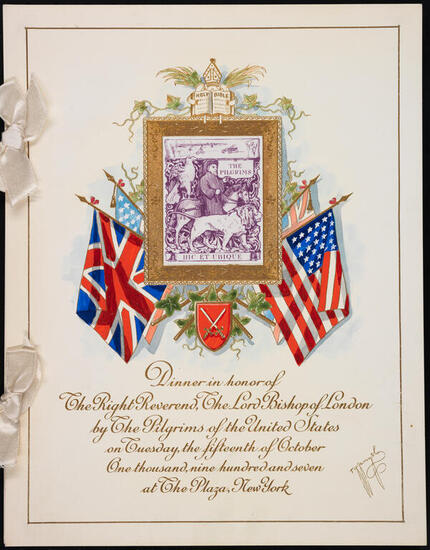 HOLY BIBLE
THE
PILGRIMS
HIC ET UBIQUE
Dinner in honor of
The Right Reverend, The Lord Bishop of London
by The Pilgrims of the United States
on Tuesday, the fifteenth of October
One thousand, nine hundred and seven
at The Plaza, New York